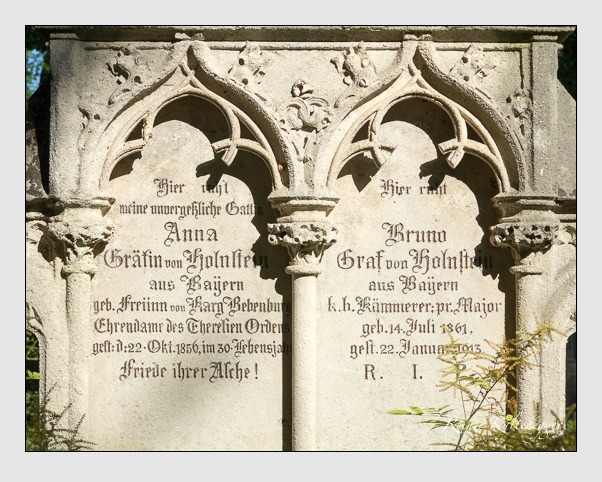 Hier ruht
meine unvergeßliche Gattin
Anna
Gräfin von Holnstein
aus Bayern
geb. Freiinn von Karg Bebenburg
Ehrendame des Theresien Ordens
gest: d: 22. Okt. 1856, im 30. Lebensjah
Friede ihrer Asche!
Hier ruht
Bruno
Graf von Holnstein
aus Bayern
k. b. Kämmerer; pr. Major
geb. 14. Juli 1861.
gest. 22. Janua
R. I.